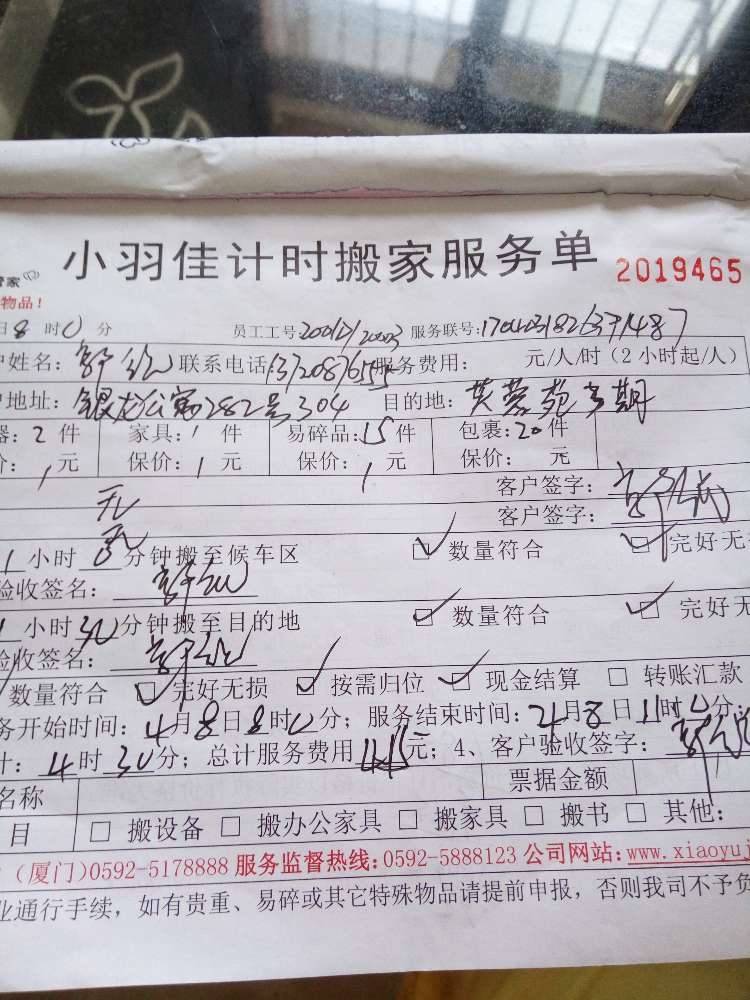 小羽佳计时搬家服务单 2019465
管家
物品！
日8时0分 员工工号: 服务联号:
户姓名: 联系电话: 服务费用: 元/人/时（2小时起/人）
户地址:银龙公寓282号304 目的地:芙蓉苑 期
器:2件 家具:1件 易碎品:15件 包裹:20件
价:1元 保价:1元 保价:1元 保价: 元
无 客户签字:
无 客户签字:
1小时 分钟搬至候车区 ☑数量符合 ☑完好无
验收签名:
小时30分钟搬至目的地 ☑数量符合 ☑完好无
验收签名:
数量符合 ☑完好无损 ☑按需归位 ☑现金结算 □转账汇款 □
务开始时间:4月8日8时0分；服务结束时间:4月8日11时0分；
计:4时30分；总计服务费用 元；4、客户验收签字:
名称 票据金额
目 □搬设备 □搬办公家具 □搬家具 □搬书 □其他:
（厦门）0592-5178888 服务监督热线:0592-5888123 公司网站:www.xiaoyuj
业通行手续，如有贵重、易碎或其它特殊物品请提前申报，否则我司不予负